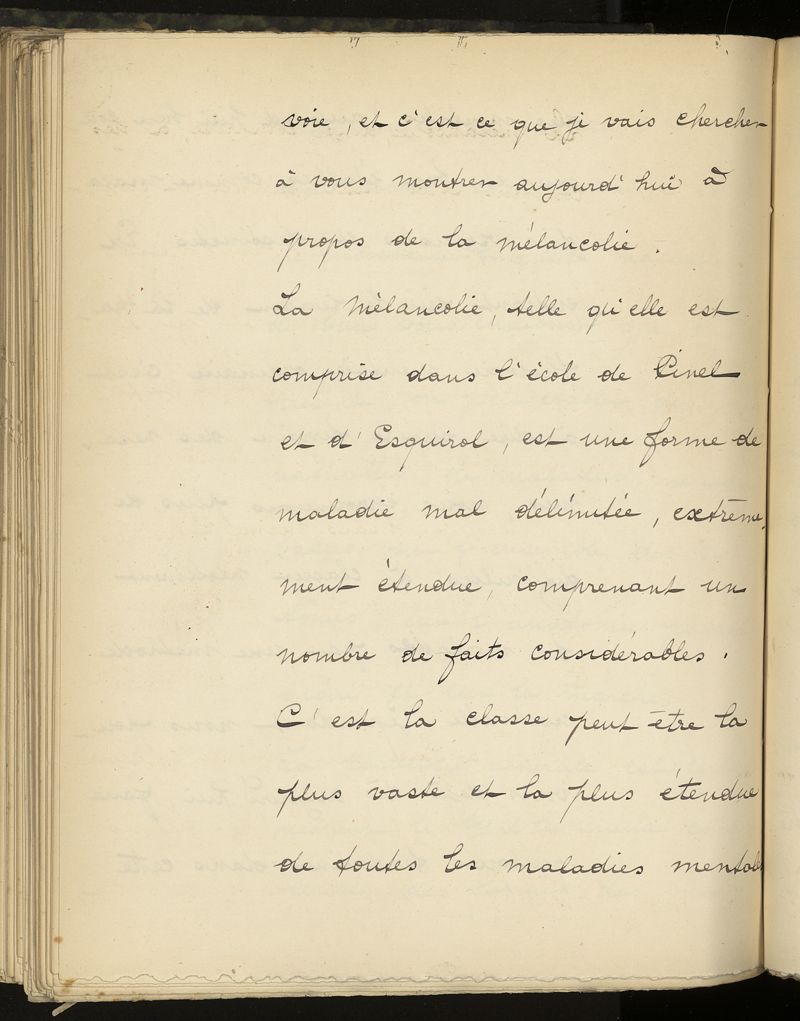 voie, et c'est ce que je vais chercher
à vous montrer aujourd'hui à
propos de la mélancolie.
La Mélancolie, telle qu'elle est
comprise dans l'école de Pinel
et d'Esquirol, est une forme de
maladie mal délimitée, extrême-
ment étendue, comprenant un
nombre de faits considérables.
C'est la classe peut-être la
plus vaste et la plus étendue
de toutes les maladies mental